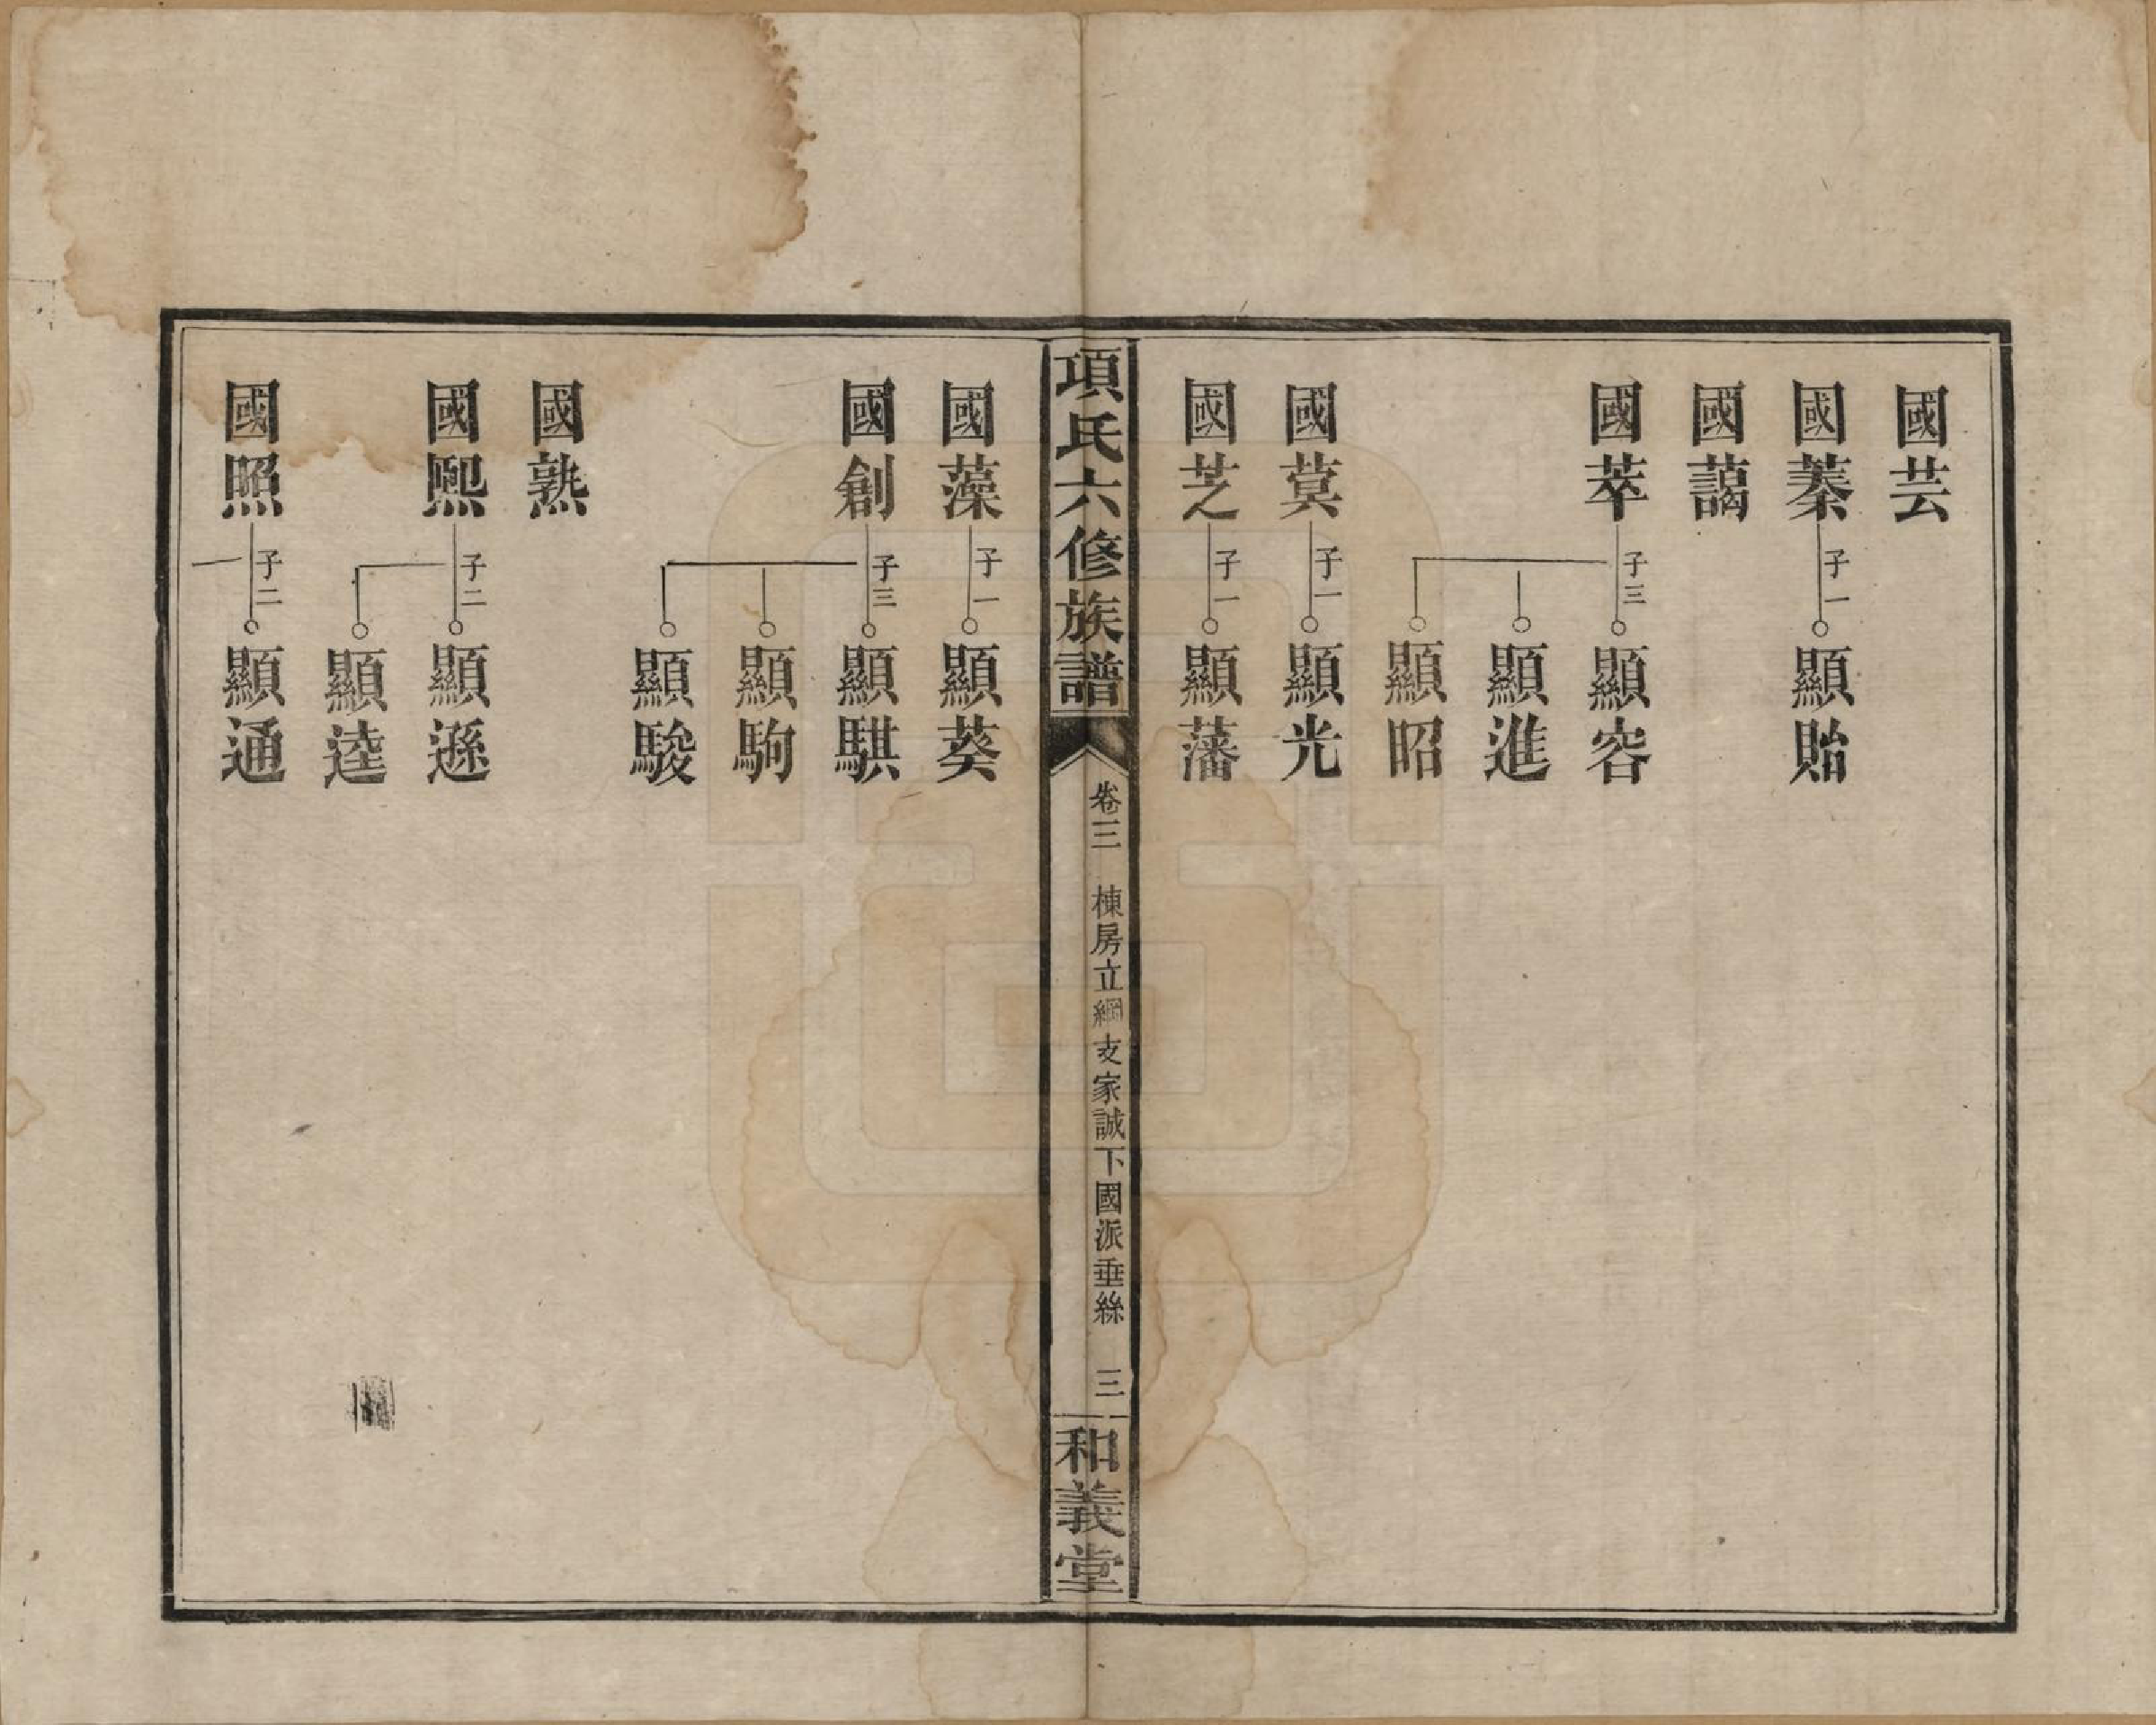 國芸
國蓁 子一 顯貽
國藹
國萃 子三 顯容
顯進
顯昭
國蓂 子一 顯光
國芝 子一 顯藩
項氏六修族譜 卷三 棟房立綱支家誠下國派垂絲 三 和義堂
國藻 子一 顯葵
國創 子三 顯騏
顯駒
顯駿
國熟
國熙 子二 顯遜
顯逵
國照 子二 顯通